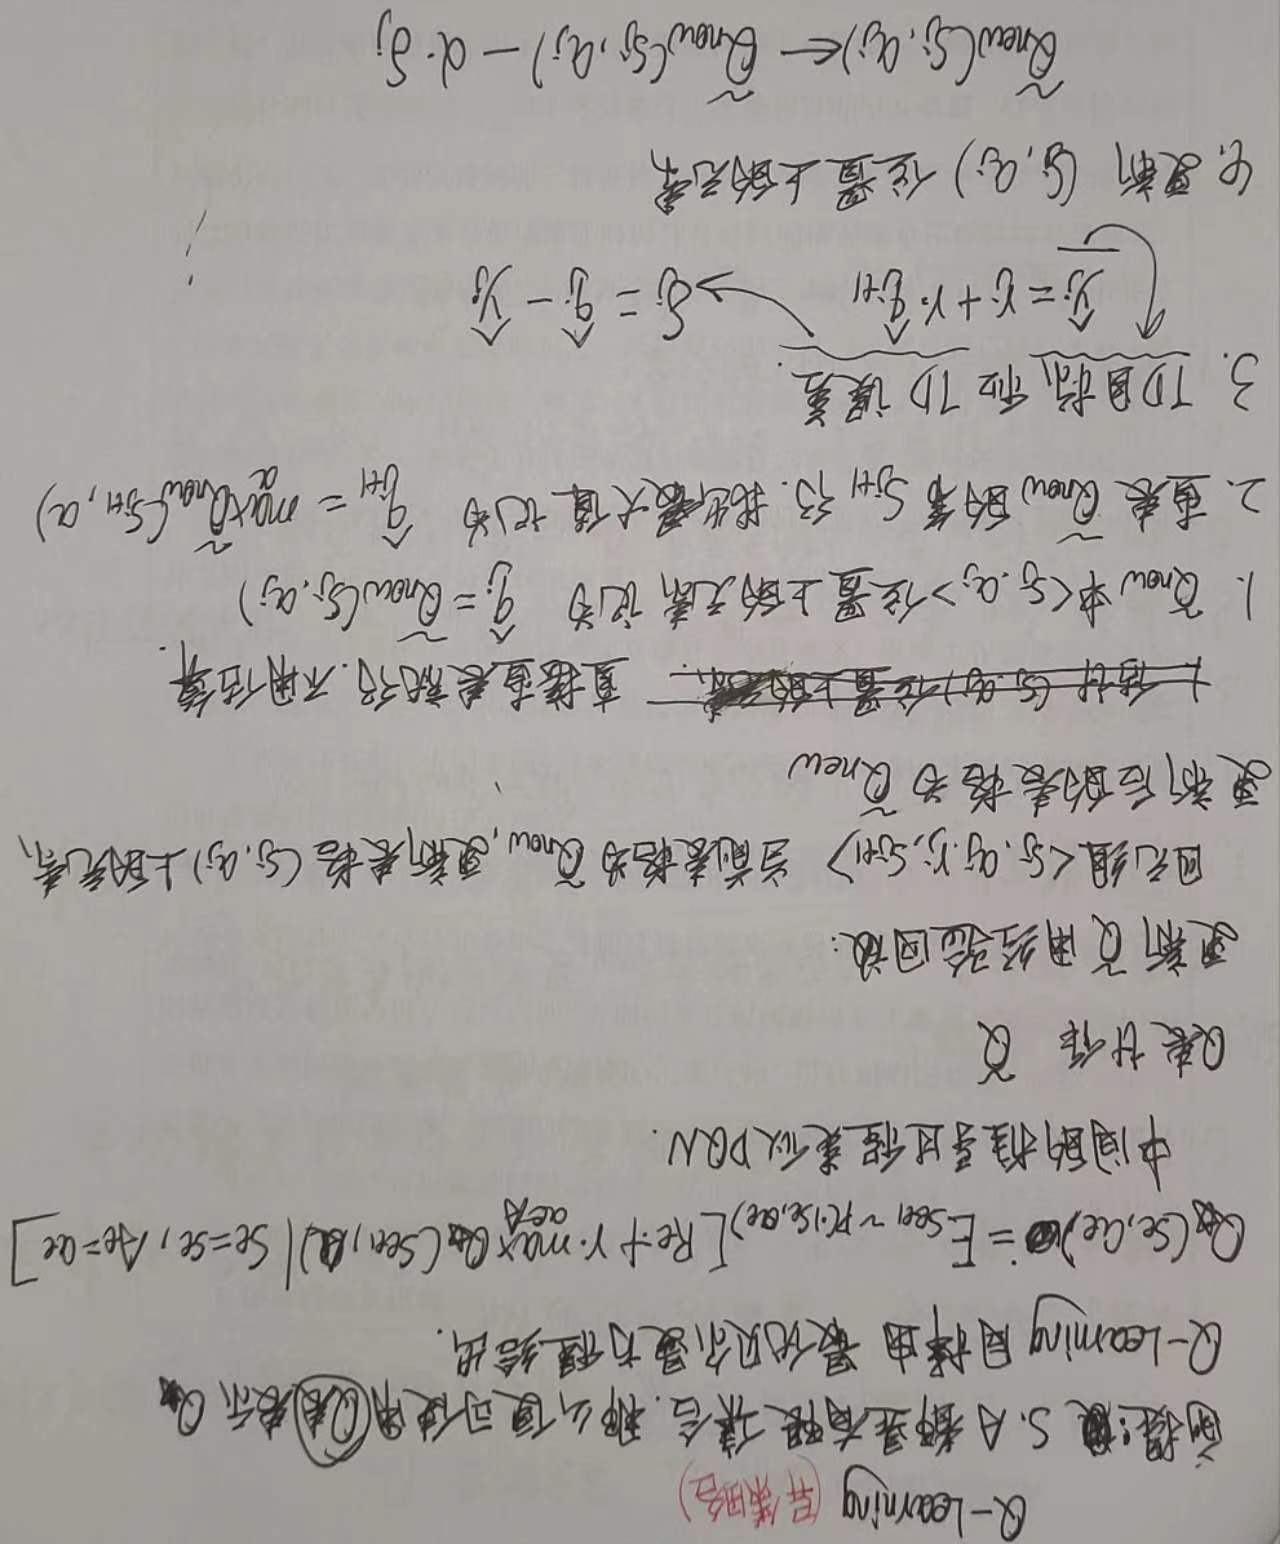 Q-Learning (异策略)
前提: S, A 都是有限集合. 那么便可使用Q表表示 Q*
Q-Learning 同样由 最优贝尔曼方程给出.
Q*(St, at) = E St+1~P(·|St,at) [Rt + γ·max a∈A Q*(St+1, a) | St=st, At=at]
中间的推导过程类似DQN.
Q表计作 Q̃
更新 Q̃ 用经验回放:
四元组<Sj, aj, rj, Sj+1> 当前表格为 Q̃now, 更新表格 (Sj, aj)上的元素,
更新后的表格为 Q̃new
直接查表就行. 不用估算.
1. Q̃now 中<Sj, aj>位置上的元素, 记为 q̂j = Q̃now(Sj, aj)
2. 查表 Q̃now 的第 Sj+1 行. 找出最大值 记为 q̂j+1 = max a Q̃now(Sj+1, a)
3. TD目标, 和 TD 误差.
ŷj = rj + γ·q̂j+1 δj = q̂j − ŷj
4. 更新 (Sj, aj) 位置上的元素,
Q̃new(Sj, aj) ← Q̃now(Sj, aj) − α·δj